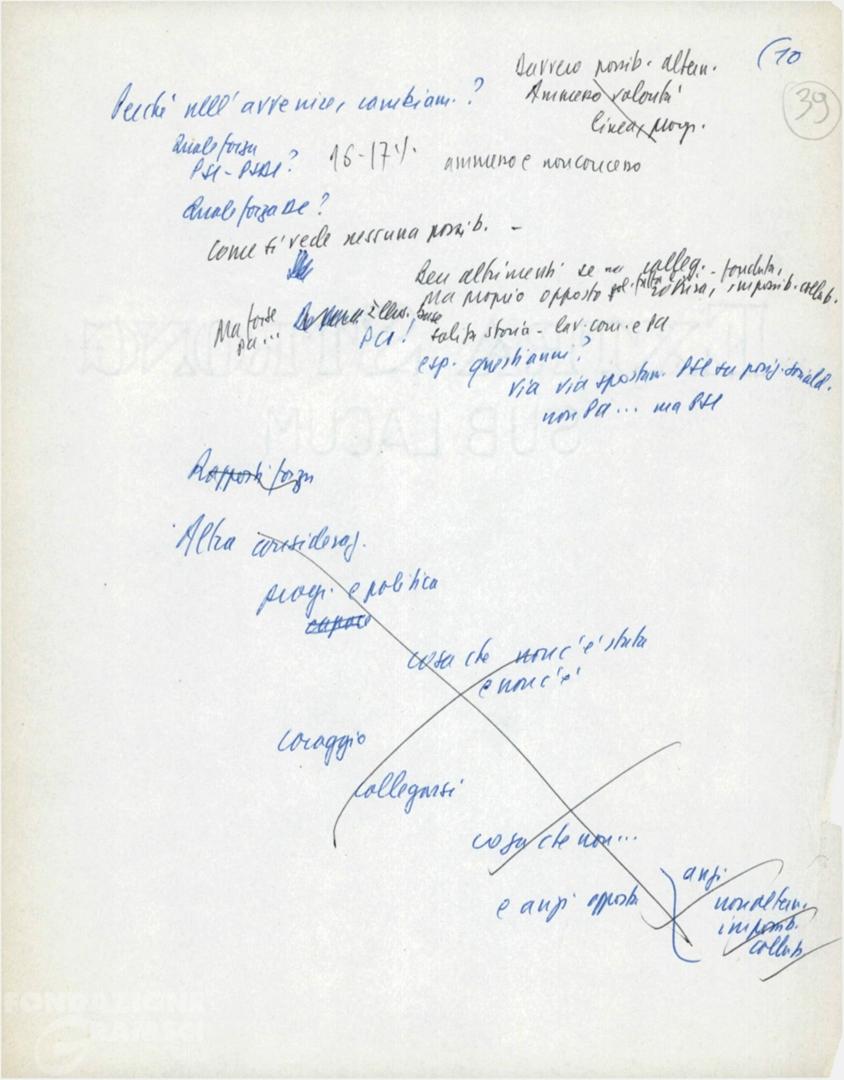 (10
39
Davvero possib. altern.
Ammesso volontà
linea progr.
Perché nell'avvenire, cambiam.?
Quale forza
PSI-PSDI?
16-17%.
ammesso e non concesso
Quale forza DC?
Come si vede nessuna possib. -
Ben altrimenti se
Ma proprio opposto impossib. collab.
Ma forse
PCI...
PCI!
solita storia - lav. com. e PCI
esp. questi anni?
via via spostam. PSI su posiz. sociald.
non PCI... ma PSI
Rapporti forza
Altra consideraz.
progr. e politica
capace
cosa che non c'è stata
e non c'è
coraggio
collegarsi
cosa che non...
e anzi opposta
anzi
non altern.
impossib.
collab.
EXTRA STRONG
SUB LACUM
FONDAZIONE
GRAMSCI